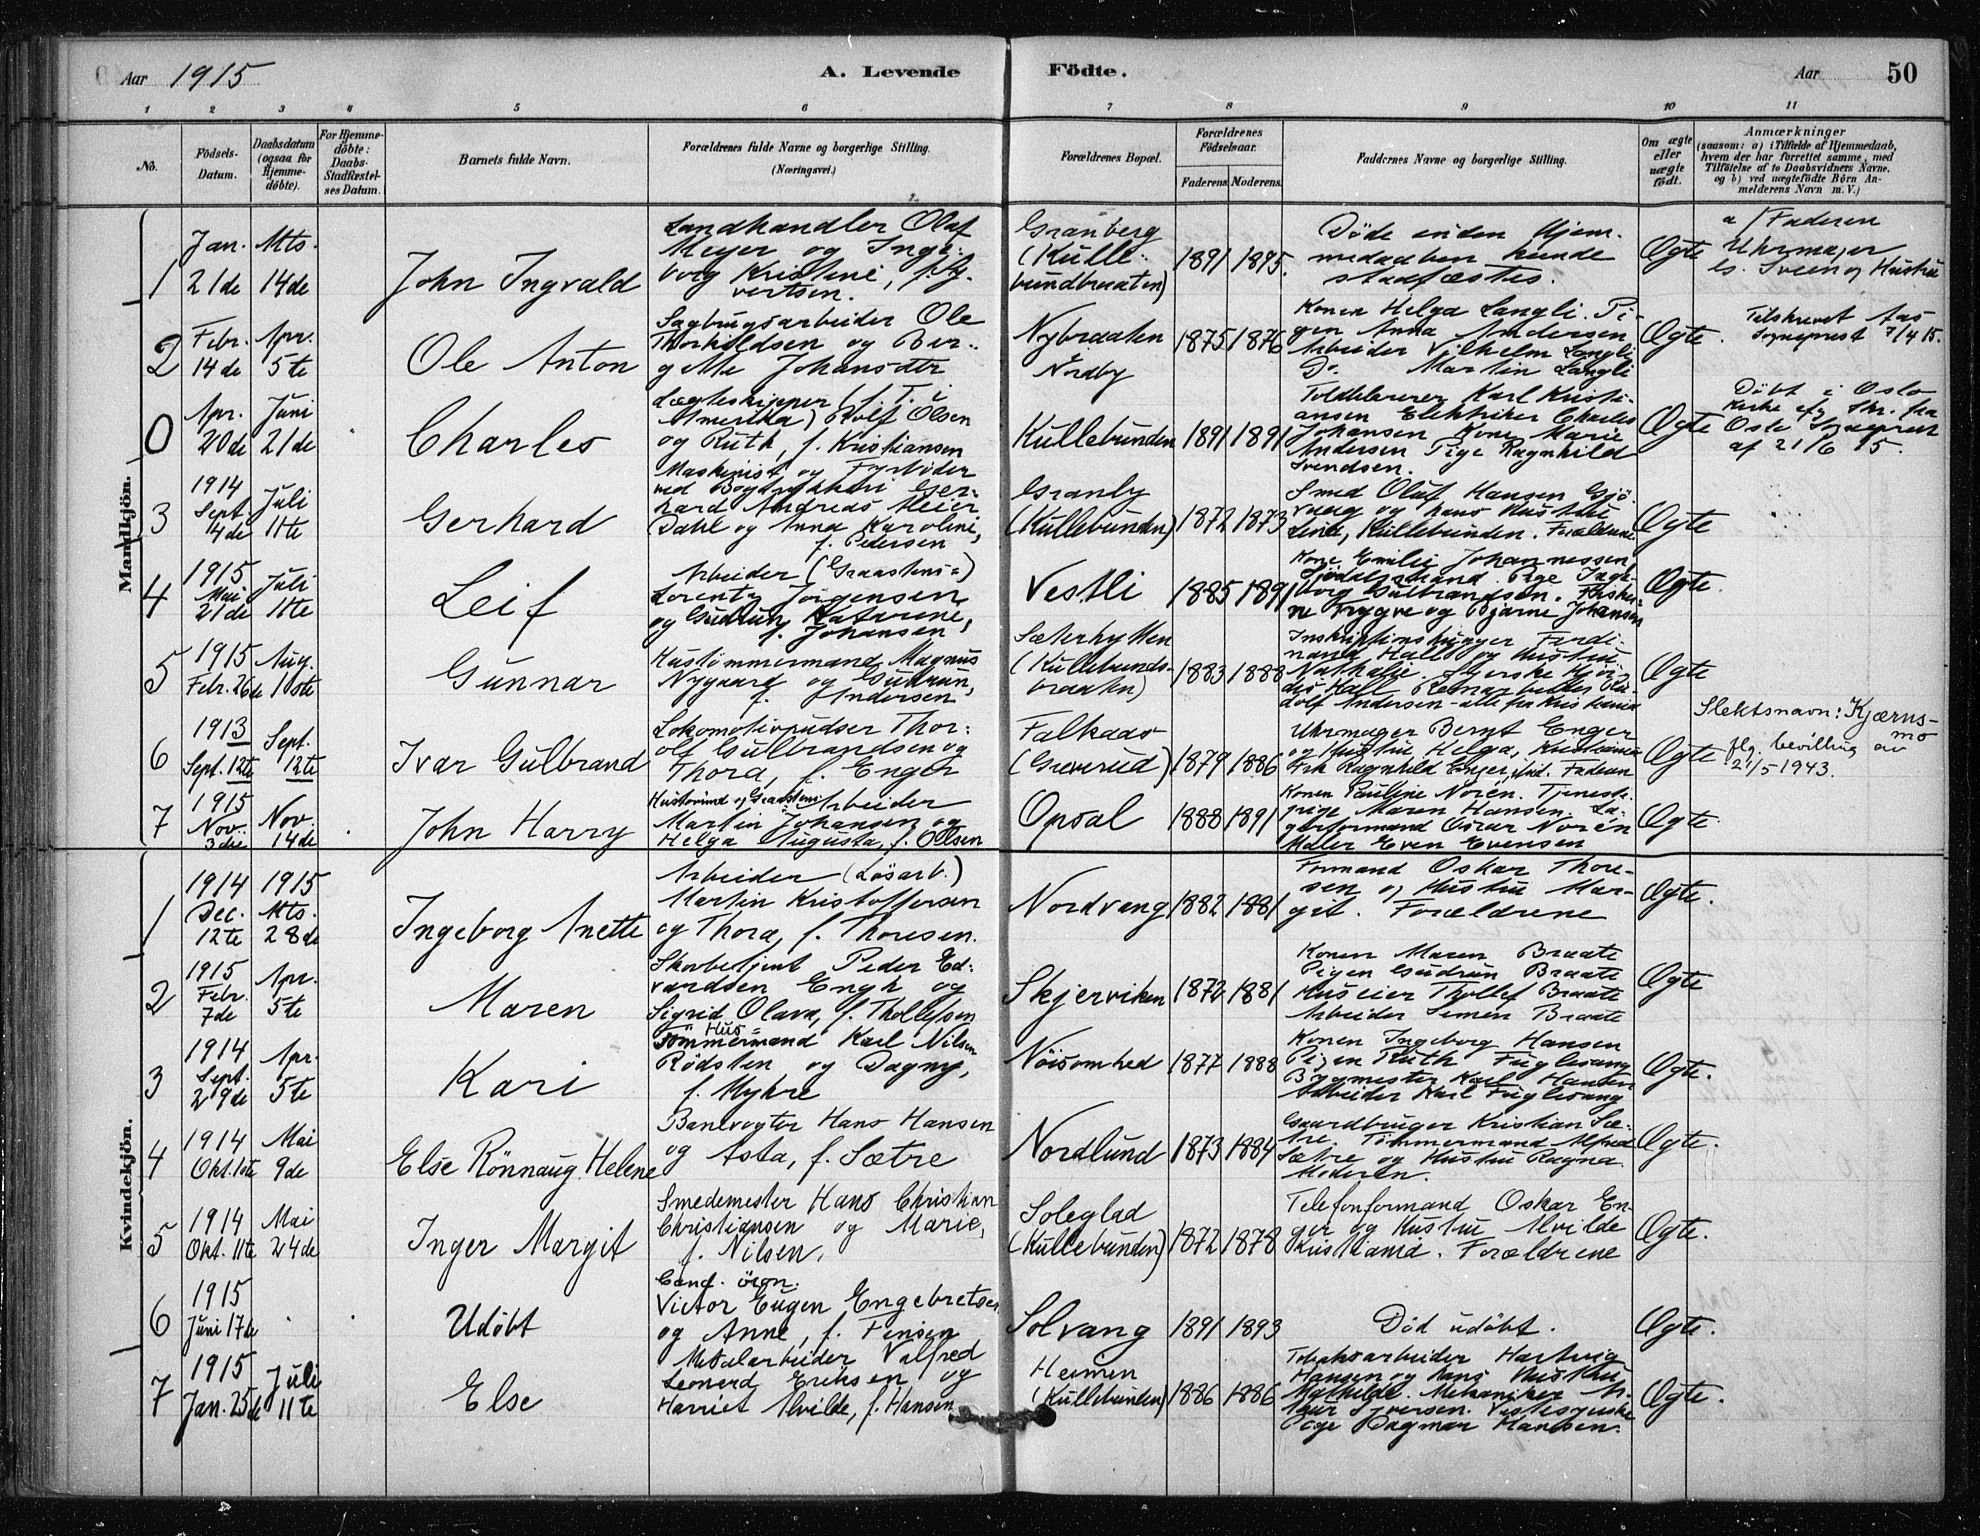 Aar 1915
A. Levende Födte.
Aar
50
1 2 3 4 5 6 7 8 9 10 11
No.
Födsels-Datum.
Daabsdatum (ogsaa for Hjemme-döbte).
For Hjemme-döbte: Daabs-Stadfæstel-ses Datum.
Barnets fulde Navn.
Forældrenes fulde Navne og borgerlige Stilling.
(Næringsvei.)
Forældrenes Bopæl.
Forældrenes Födselsaar.
Faderens. Moderens.
Faddernes Navne og borgerlige Stilling.
Om ægte eller uægte födt.
Anmærkninger
(saasom: a) i Tilfælde af Hjemmedaab,
hvem der har forrettet samme, med
Tilföielse af to Daabsvidners Navne.
og b) ved uægtefödte Börn An-
melderens Navn m. V.)
Mandkjön.
1
Jan. 21de
Mts. 14de
John Ingvald
Landhandler Olaf
Meyer og Inge-
borg Kristine, f. Sy-
vertsen.
Granberg
(Kulle-
bundbraaten)
1891 1895.
Döde inden Hjem-
medaaben kunde
stadfæstes.
Ægte
a/ Faderen
Uhrmager
Sveen og Hustru
2
Febr. 14de
Apr. 5te
Ole Anton
Sagbrugsarbeider Ole
Thorkildsen og Ber-
gitte Johansdtr
Nybraaten
Nordby
1875 1876
Konen Helga Langli. Pi-
gen Anna Andersen
Arbeider Vilhelm Langli
Do. Martin Langli
Ægte.
Tilskrevet Aas
Sogneprest 7/4 15.
0
Apr. 20de
Juni 21de
Charles
Lægteskipper (f. T. i
Amerika) Rolf Olsen
og Ruth, f. Kristiansen
Kullebunden
1891 1891
Toldelever Karl Kristi-
ansen Elektriker Charles
Johansen Kone Marie
Andersen Pige Ragnhild
Svendsen.
Ægte
Döbt i Oslo
Kirke efg. Skr. fra
Oslo Sogneprest
af 21/6 15.
3
1914 Sept. 4de
Juli 11te
Gerhard
Maskinist og Fyrböder
ved Bogtrykkeri Ger-
hard Andreas Meier
Dahl og Anna Karoline,
f. Pedersen
Granly
(Kullebunden)
1872 1873
Smed Oluf Hansen Gjö-
vaag og hans Hustru
Line, Kullebunden. Forældrene
Ægte
4
1915 Mai 21de
Juli 11te
Leif
Arbeider (Graastens=)
Lorentz Jörgensen
og Gudrun Katrine,
f. Johansen
Vestli
1885 1891
Kone Emilie Johannessen,
Pige Inge-
borg Gulbrandsen. Fisker-
ne Trygve og Bjarne Johansen
Ægte.
5
1915 Febr. 26de
Aug. 10de
Gunnar
Hustömmermand Magnus
Nygaard og Gudrun,
f. Andersen
Sæterhytten
(Kullebunds-
braaten)
1883 1888
Ferdi-
nand Hall og Hustru
Nathalie.
dis Hall
dolf Andersen – alle fra Kristiania
Ægte
6
1913 Sept. 12te
Sept. 12te
Ivar Gulbrand
Lokomotivpudser Thor-
olf Gulbrandsen og
Thora, f. Enger
Falkaas
(Greverud)
1879 1886
Uhrmager Bernt Enger
og Hustru Helga, Kristiania
Frk Ragnhild Enger, ibid. Faderen
Ægte
Slektsnavn: Kjærns-
mo
flg. bevilling av
21/5 1943.
7
1915 Nov. 3die
Nov. 14de
John Harry
Husmand og Graastens Arbeider
Martin Johansen og
Helga Augusta, f. Olsen
Opsal
1888 1891
Konen Pauline Noren. Tjeneste-
pige Maren Hansen. La-
gerformand Oscar Noren
Maler Even Evensen
Ægte.
Kvindekjön.
1
1914 Dec. 12te
1915 Mts. 28de
Ingeborg Anette
Arbeider (Lösarb.)
Martin Kristoffersen
og Thora, f. Thoresen.
Nordvang
1882 1881
Formand Oskar Thore-
sen og Hustru Mar-
git. Forældrene
Ægte.
2
1915 Febr. 7de
Apr. 5te
Maren
Skovbetjent Peder Ed-
vardsen Engh og
Sigrid Olava, f. Thollefsen
Skjerviken
1872 1881
Konen Maren Braate
Pigen Gudrun Braate
Huseier Thollef Braate
Arbeider Simen Braate
Ægte
3
1914 Sept. 29de
Apr. 5te
Kari
Hus=
Tömmermand Karl Nilsen
Rödsten og Dagny,
f. Myhre
Nöisomhed
1877 1888
Konen Ingeborg Hansen
Pigen Ruth Fuglesang
Bygmester Karl Hansen
Arbeider Karl Fuglesang
Ægte.
4
1914 Okt. 1ste
Mai 9de
Else Rönnaug Helene
Banevogter Hans Hansen
og Asta, f. Sætre
Nordlund
1873 1884
Gaardbruger Kristian Sæ-
tre. Tömmermand Alfred
Sætre og Hustru Ragna
Moderen.
Ægte.
5
1914 Okt. 11te
Mai 24de
Inger Margit
Smedemester Hans Christian
Christiansen og Marie,
f. Nilsen.
Soleglad
(Kullebunden)
1872 1878
Telefonformand Oskar En-
ger og Hustru Alvilde
Kristiania. Forældrene
Ægte.
6
1915 Juni 17de
Udöbt
Cand. ökon.
Victor Eugen Engebretsen
og Anne, f. Jensen
Solvang
1891 1893
Död udöbt.
Ægte.
7
1915 Jan. 25de
Juli 11te
Else
Metalarbeider Valfred
Leonerd Eriksen og
Harriet Alvilde, f. Hansen
Heimen
(Kullebunden)
1886 1886
Tobaksarbeider Hartvig
Hansen og hans Hustru
Mathilde. Mekaniker
Iversen.
Pige Dagmar Hansen.
Ægte.